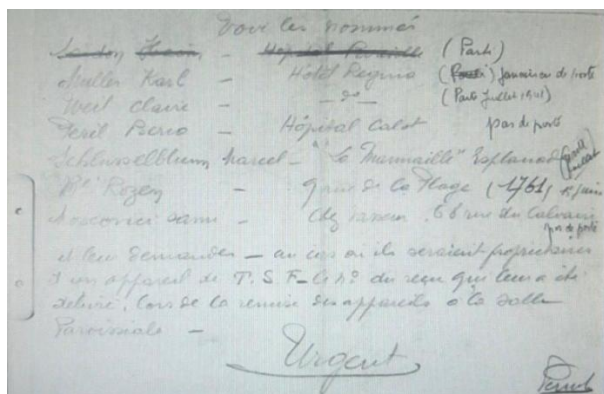 Voir les nommés
– (Parti)
Muller Karl – Hôtel Regina (Parti) jamais eu de poste
Weil Claire – – do – (Parti Juillet 1941)
– Hôpital Calot pas de poste
Schlusselblum Marcel – "La Marmaille" Esplanade
Rozen – 9 rue de la Plage (1761)
– Chez 66 rue du Calvaire pas de poste
et leur demander – au cas où ils seraient propriétaires
d'un appareil de T.S.F – le no du reçu qui leur a été
délivré, lors de la remise des appareils à la salle
Paroissiale –
Urgent